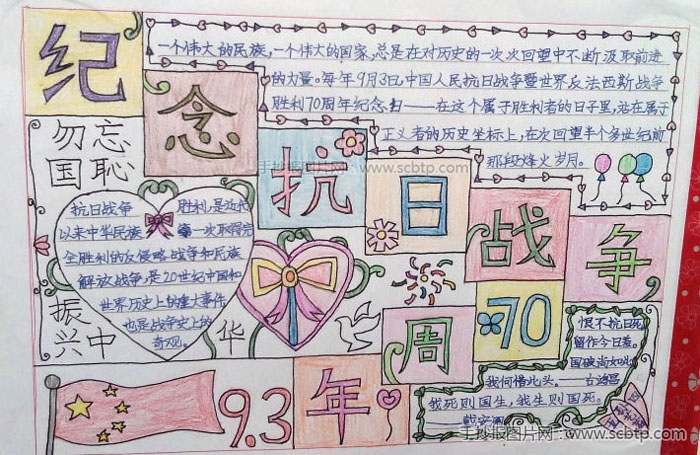 纪念抗日战争
70周年
一个伟大的民族,一个伟大的国家,总是在对历史的一次次回望中不断汲取前进
的力量。每年9月3日,中国人民抗日战争暨世界反法西斯战争
胜利70周年纪念日——在这个属于胜利者的日子里,站在属于
正义者的历史坐标上,在次回望半个多世纪前
那段烽火岁月。
手抄报图片网:www.scbtp.com
勿忘
国耻
抗日战争 胜利是近代
以来中华民族 第一次取得完
全胜利的反侵略战争和民族
解放战争,是20世纪中国和
世界历史上的重大事件
也是战争史上的
奇观。
振兴中华
9.3
恨不抗日死
留作今日羞。
国破尚如此
我何惜此头。——吉鸿昌
我死则国生,我生则国死。
手抄报图片网:www.scbtp.com